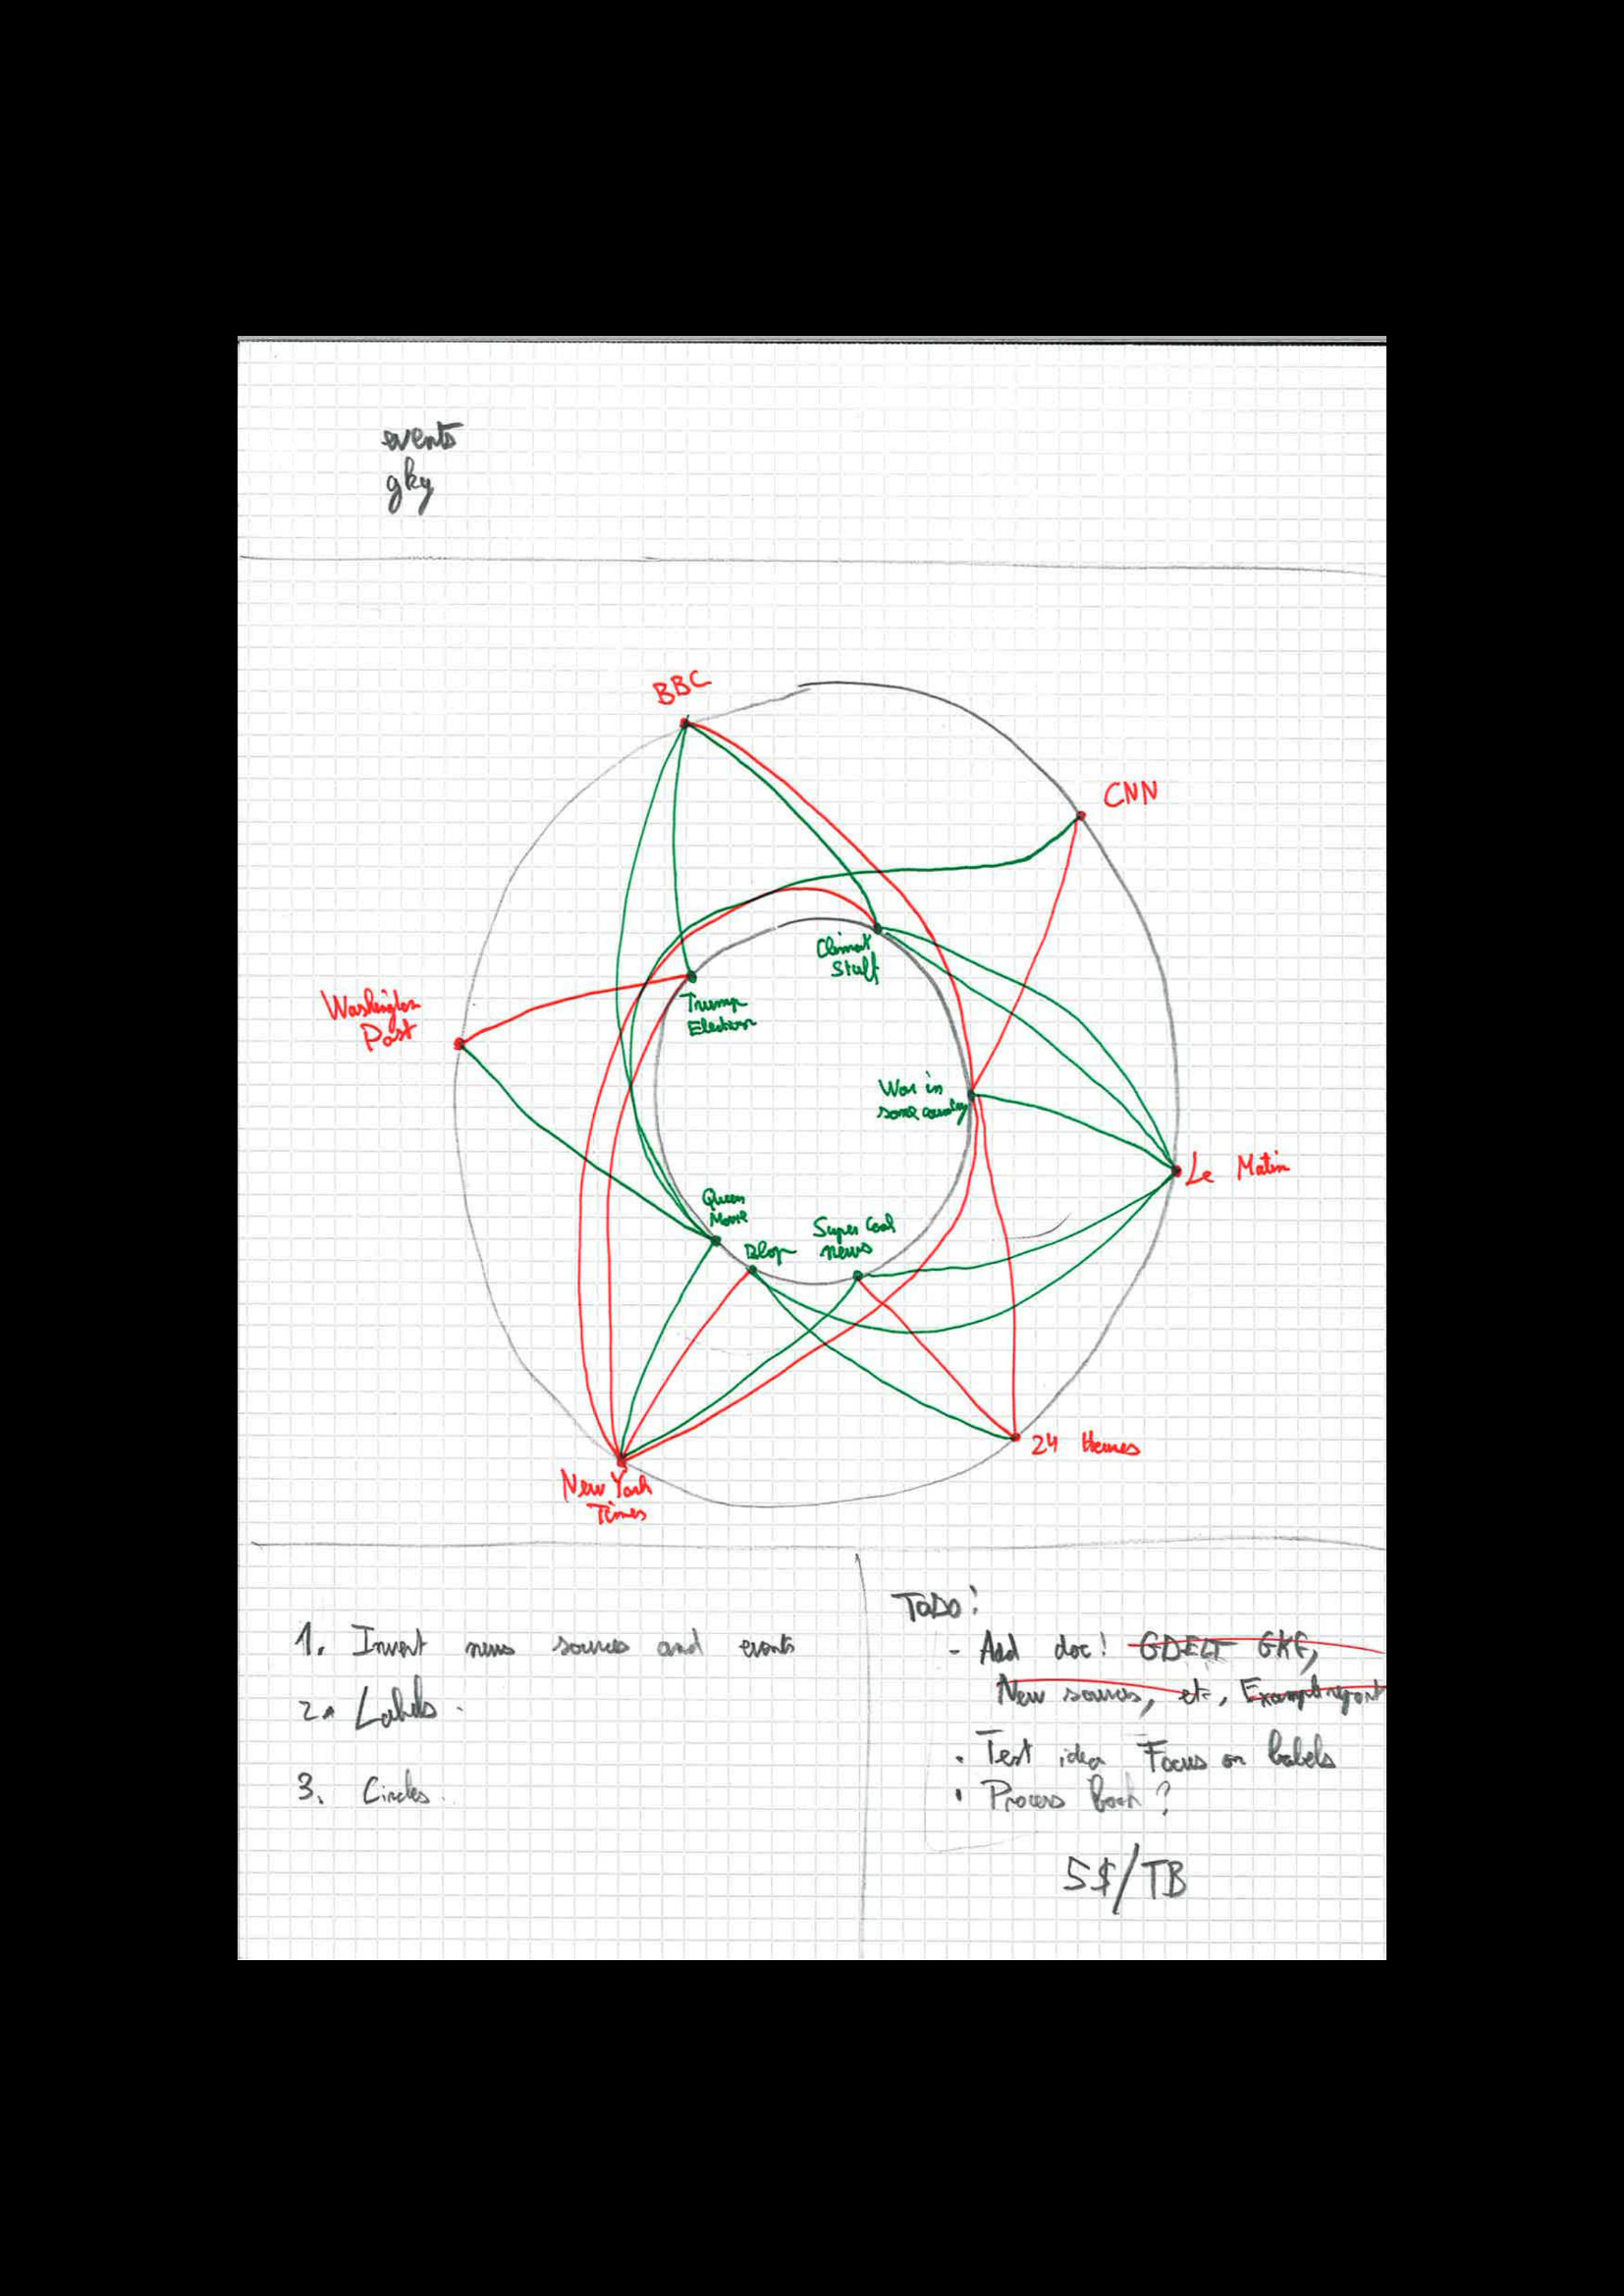 events
gkg
BBC
CNN
Climat
Stuff
Washington
Post
Trump
Election
War in
some country
Le Matin
Queen
Movie
Blop
Super Cool
news
24 Heures
New York
Times
1. Invert news sources and events
2. Labels.
3. Circles.
ToDo:
- Add doc! GDELT GKG,
New sources, etc, Example report
. Test idea Focus on labels
. Process book?
5$/TB